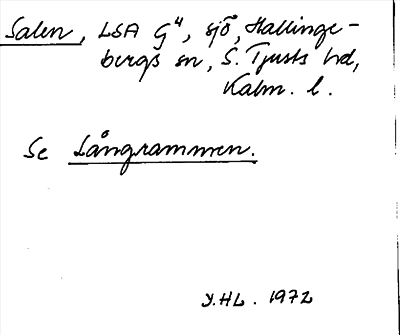 Salen, LSA G4, sjö, Hallinge-
bergs sn, S. Tjusts hd,
Kalm. l.
Se Långrammen.
Y.HL. 1972